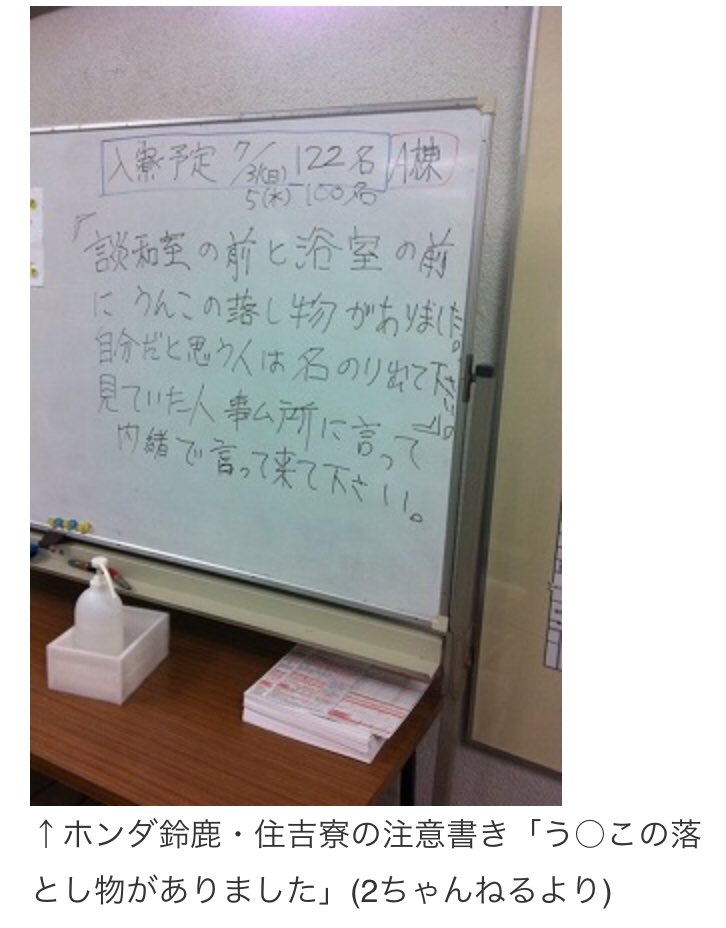 入寮予定 7/31(日) 122名 A棟
5(木) 100名
『談和室の前と浴室の前
に うんこの落し物がありました。
自分だと思う人は名のり出て下さい。』
見ていた人事ム所に言って
内緒で言って来て下さい。
↑ホンダ鈴鹿・住吉寮の注意書き「う○この落
とし物がありました」(2ちゃんねるより)